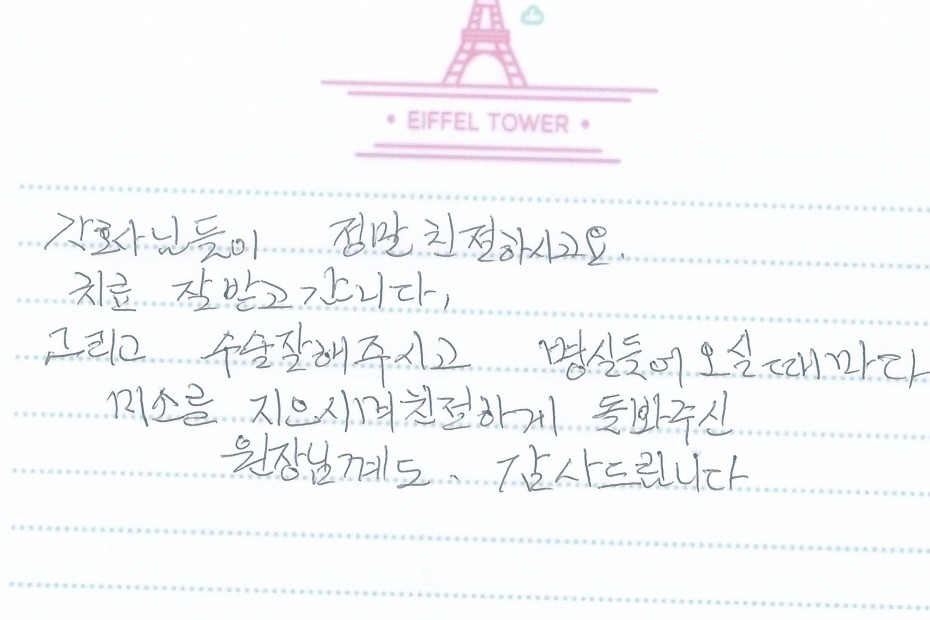 • EIFFEL TOWER •
간호사님들이 정말 친절하시고요.
치료 잘 받고 갑니다,
그리고 수술잘해주시고 병실들어오실때마다
미소를 지으시며 친절하게 돌봐주신
원장님께도. 감사드립니다